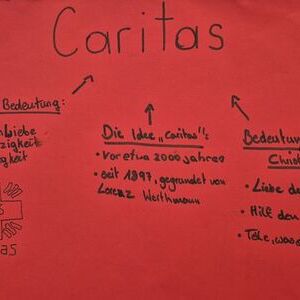 Caritas
Bedeutung:
nliebe
zigkeit
gkeit
as
Die Idee „Caritas":
• Vor etwa 2000 Jahren
• Seit 1897, gegründet von
Lorenz Werthmann
Bedeutun
Christ
• Liebe de
• Hilf den
• Tue, was